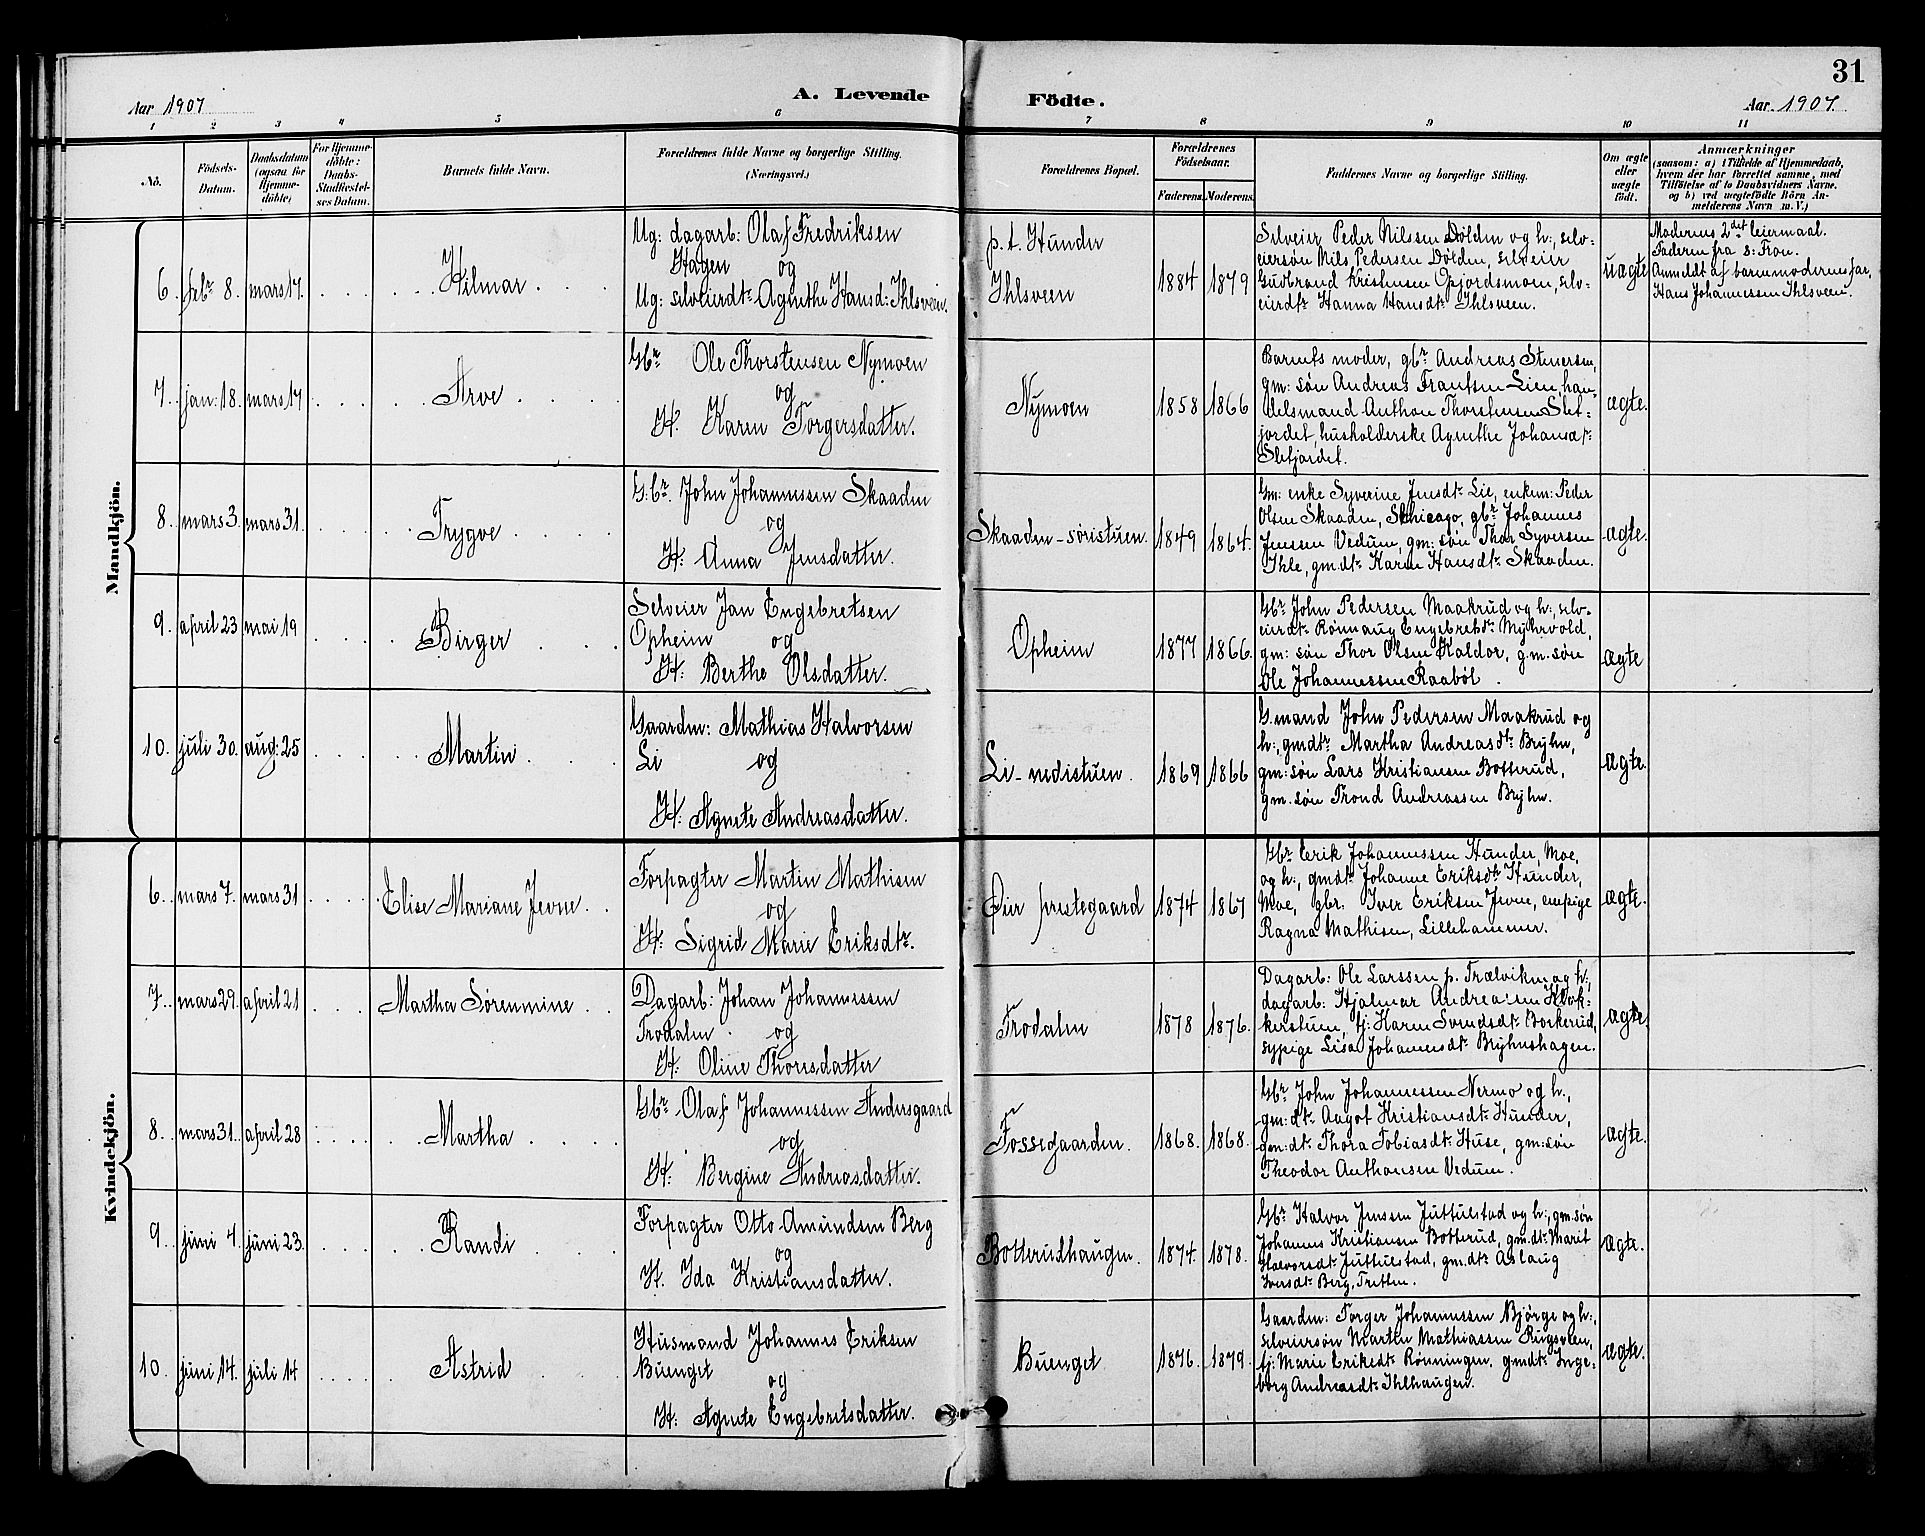 31
Aar 1907
A. Levende
Födte.
Aar 1907.
1 2 3 4 5 6 7 8 9 10 11
No.
Födsels-
Datum.
Daabsdatum
(ogsaa for
Hjemme-
döbte)
For Hjemme-
döbte:
Daabs-
Stadfæstel-
ses Datum.
Barnets fulde Navn.
Forældrenes fulde Navne og borgerlige Stilling.
(Næringsvei.)
Forældrenes Bopæl.
Forældrenes
Födselsaar.
Faderens. Moderens.
Faddernes Navne og borgerlige Stilling.
Om ægte
eller
uægte
födt.
Anmærkninger
(saasom: a) i Tilfælde af Hjemmedaab,
hvem der har forrettet samme, med
Tilföielse af to Daabsvidners Navne.
og b) ved uægtefödte Börn An-
melderens Navn m. V.)
Mandkjön.
6. febr 8. mars 17. Hilmar
Ug: dagarb: Olaf Fredriksen
Hagen og
Ug: selveierdt: Agnethe Hansd: Ihlsveen.
p. t. Hunder
Ihlsveen
1884 1879
Selveier Peder Nilssen Dölden og h:, selv-
eiersøn Nils Pedersen Dölden, selveier
Gudbrand Kristensen Opjordsmoen, selv-
eierdt: Hanna Hansdt: Ihlsveen.
uægte
Moderens 2det leiermaal.
Faderen fra S: Fron.
Anmeldt af barnemoderens far,
Hans Johannessen Ihlsveen.
7. jan: 18. mars 17 Arve
Gbr Ole Thorstensen Nymoen
og
H. Karen Torgersdatter.
Nymoen
1858 1866
Barnets moder, gbr: Andreas Stenersen,
gm: søn Andreas Frantsen Lien, han-
delsmand Anthon Thorstensen Slet-
jordet, husholderske Agnethe Johansdt:
Sletjordet.
ægte.
8. mars 3. mars 31. Trygve
G:br. John Johannessen Skaaden
og
H: Anna Jensdatter.
Skaaden-søristuen.
1849 1864.
Gm: enke Syverine Jensdt: Lie, enkem: Peder
Olsen Skaaden, Chicago, gbr: Johannes
Jenssen Vedum, gm: søn Thor Syversen
Ihle, gm.dt: Karen Hansdt: Skaaden.
ægte.
9. april 23 mai 19 Birger
Selveier Jan Engebretsen
Opheim og
H: Berthe Olsdatter.
Opheim
1877 1866.
Gbr: John Pedersen Maakrud og h:, selv-
eierdt: Rønnaug Engebretsdt: Myhrvold,
gm: søn Thor Olsen Kaldor, g.m. søn
Ole Johannessen Raaböl.
ægte
10. juli 30. aug: 25 Martin
Gaardm: Mathias Halvorsen
Li og
H: Agnete Andreasdatter.
Li-nedistuen.
1869 1866
G.mand John Pedersen Maakrud og
h:, gmdtr Martha Andreasdt: Bryhn,
gm: søn Lars Kristiansen Botterud,
gm. søn Trond Andreassen Bryhn.
ægte.
Kvindekjön.
6. mars 7. mars 31 Elise Mariane Jevne.
Forpagter Martin Mathisen
og
H: Sigrid Marie Eriksdtr.
Øier prestegaard
1874 1867
Gbr: Eerik Johannessen Hunder, Moe,
og h:, gmdt: Johanne Eriksdt: Hunder,
Moe, gbr. Iver Eriksen Jevne, enpige
Ragna Mathisen, Lillehammer.
ægte.
7. mars 29. april 21 Martha Sørenmine.
Dagarb: Johan Johannessen
Trodalen og
H: Oline Thoresdatter
Trodalen
1878 1876.
Dagarb: Ole Larssen p. Trælviken og h:,
dagarb: Hjalmar Andreassen Klok-
kerstuen, tj: Karen Svendsdt: Borkerud,
sypige Lisa Johannesdt: Bryhnshagen.
ægte.
8. mars 31. april 28 Martha
Gbr: Olaf Johannessen Andersgaard
og
H: Bergine Andreasdatter.
Fossegaarden.
1868. 1868.
Gbr: John Johannessen Nermo og h.,
gm: dt: Aagot Kristiansdt: Hunder,
gm: dt: Thora Tobiasdt: Huse, gm: søn
Theodor Anthonsen Vedum.
ægte.
9. juni 4. juni 23. Randi
Forpagter Otto Amundsen Berg
og
H. Ida Kristiansdatter.
Botterudhaugen.
1874. 1878.
Gbr: Halvor Jenssen Juttulstad og h:, gm.søn
Johannes Kristiansen Botterud, gm.dt: Marit
Halvorsdt: Juttulstad, gm.dt: Aslaug
Iversdt: Berg, Tretten.
ægte.
10. juni 14. juli 14 Astrid
Husmand Johannes Eriksen
Buenget og
H: Agnete Engebretsdatter.
Buenget
1876. 1879.
Gaardm: Torger Johannessen Bjørge og h:,
selveiersøn Martin Mathiassen Rugsveen,
tj: Marie Eriksdt: Rønningen, gmdt: Inge-
borg Andreasdt: Ihlhaugen.
ægte.